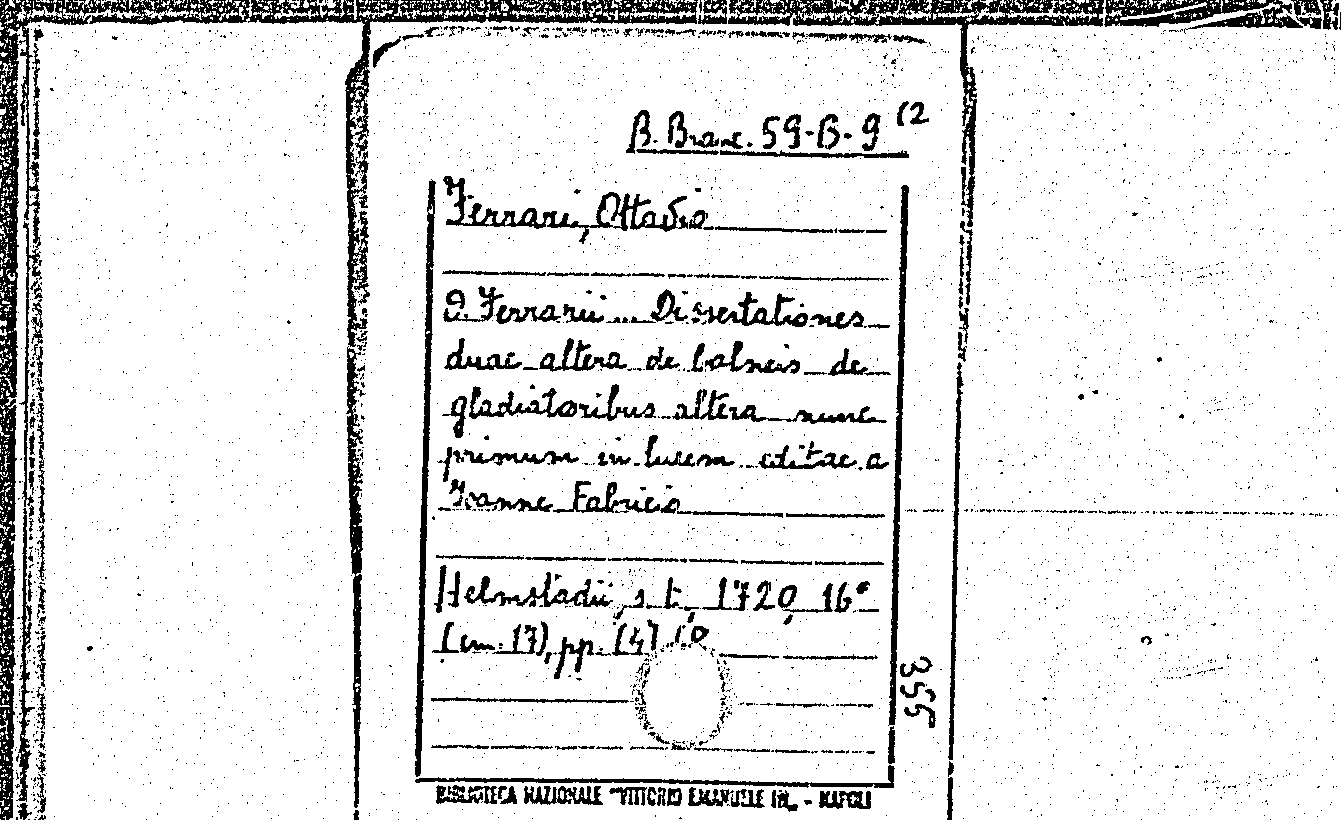 B. Branc. 59-B-9 (2
Ferrari, Ottavio
O. Ferrarii... Dissertationes
duae altera de balneis de
gladiatoribus altera nunc
primum in lucem editae a
Ioanne Fabricio
Helmstadii, s. t., 1720, 16°
(cm. 17), pp. (4)
355
BIBLIOTECA NAZIONALE "VITTORIO EMANUELE III„ - NAPOLI